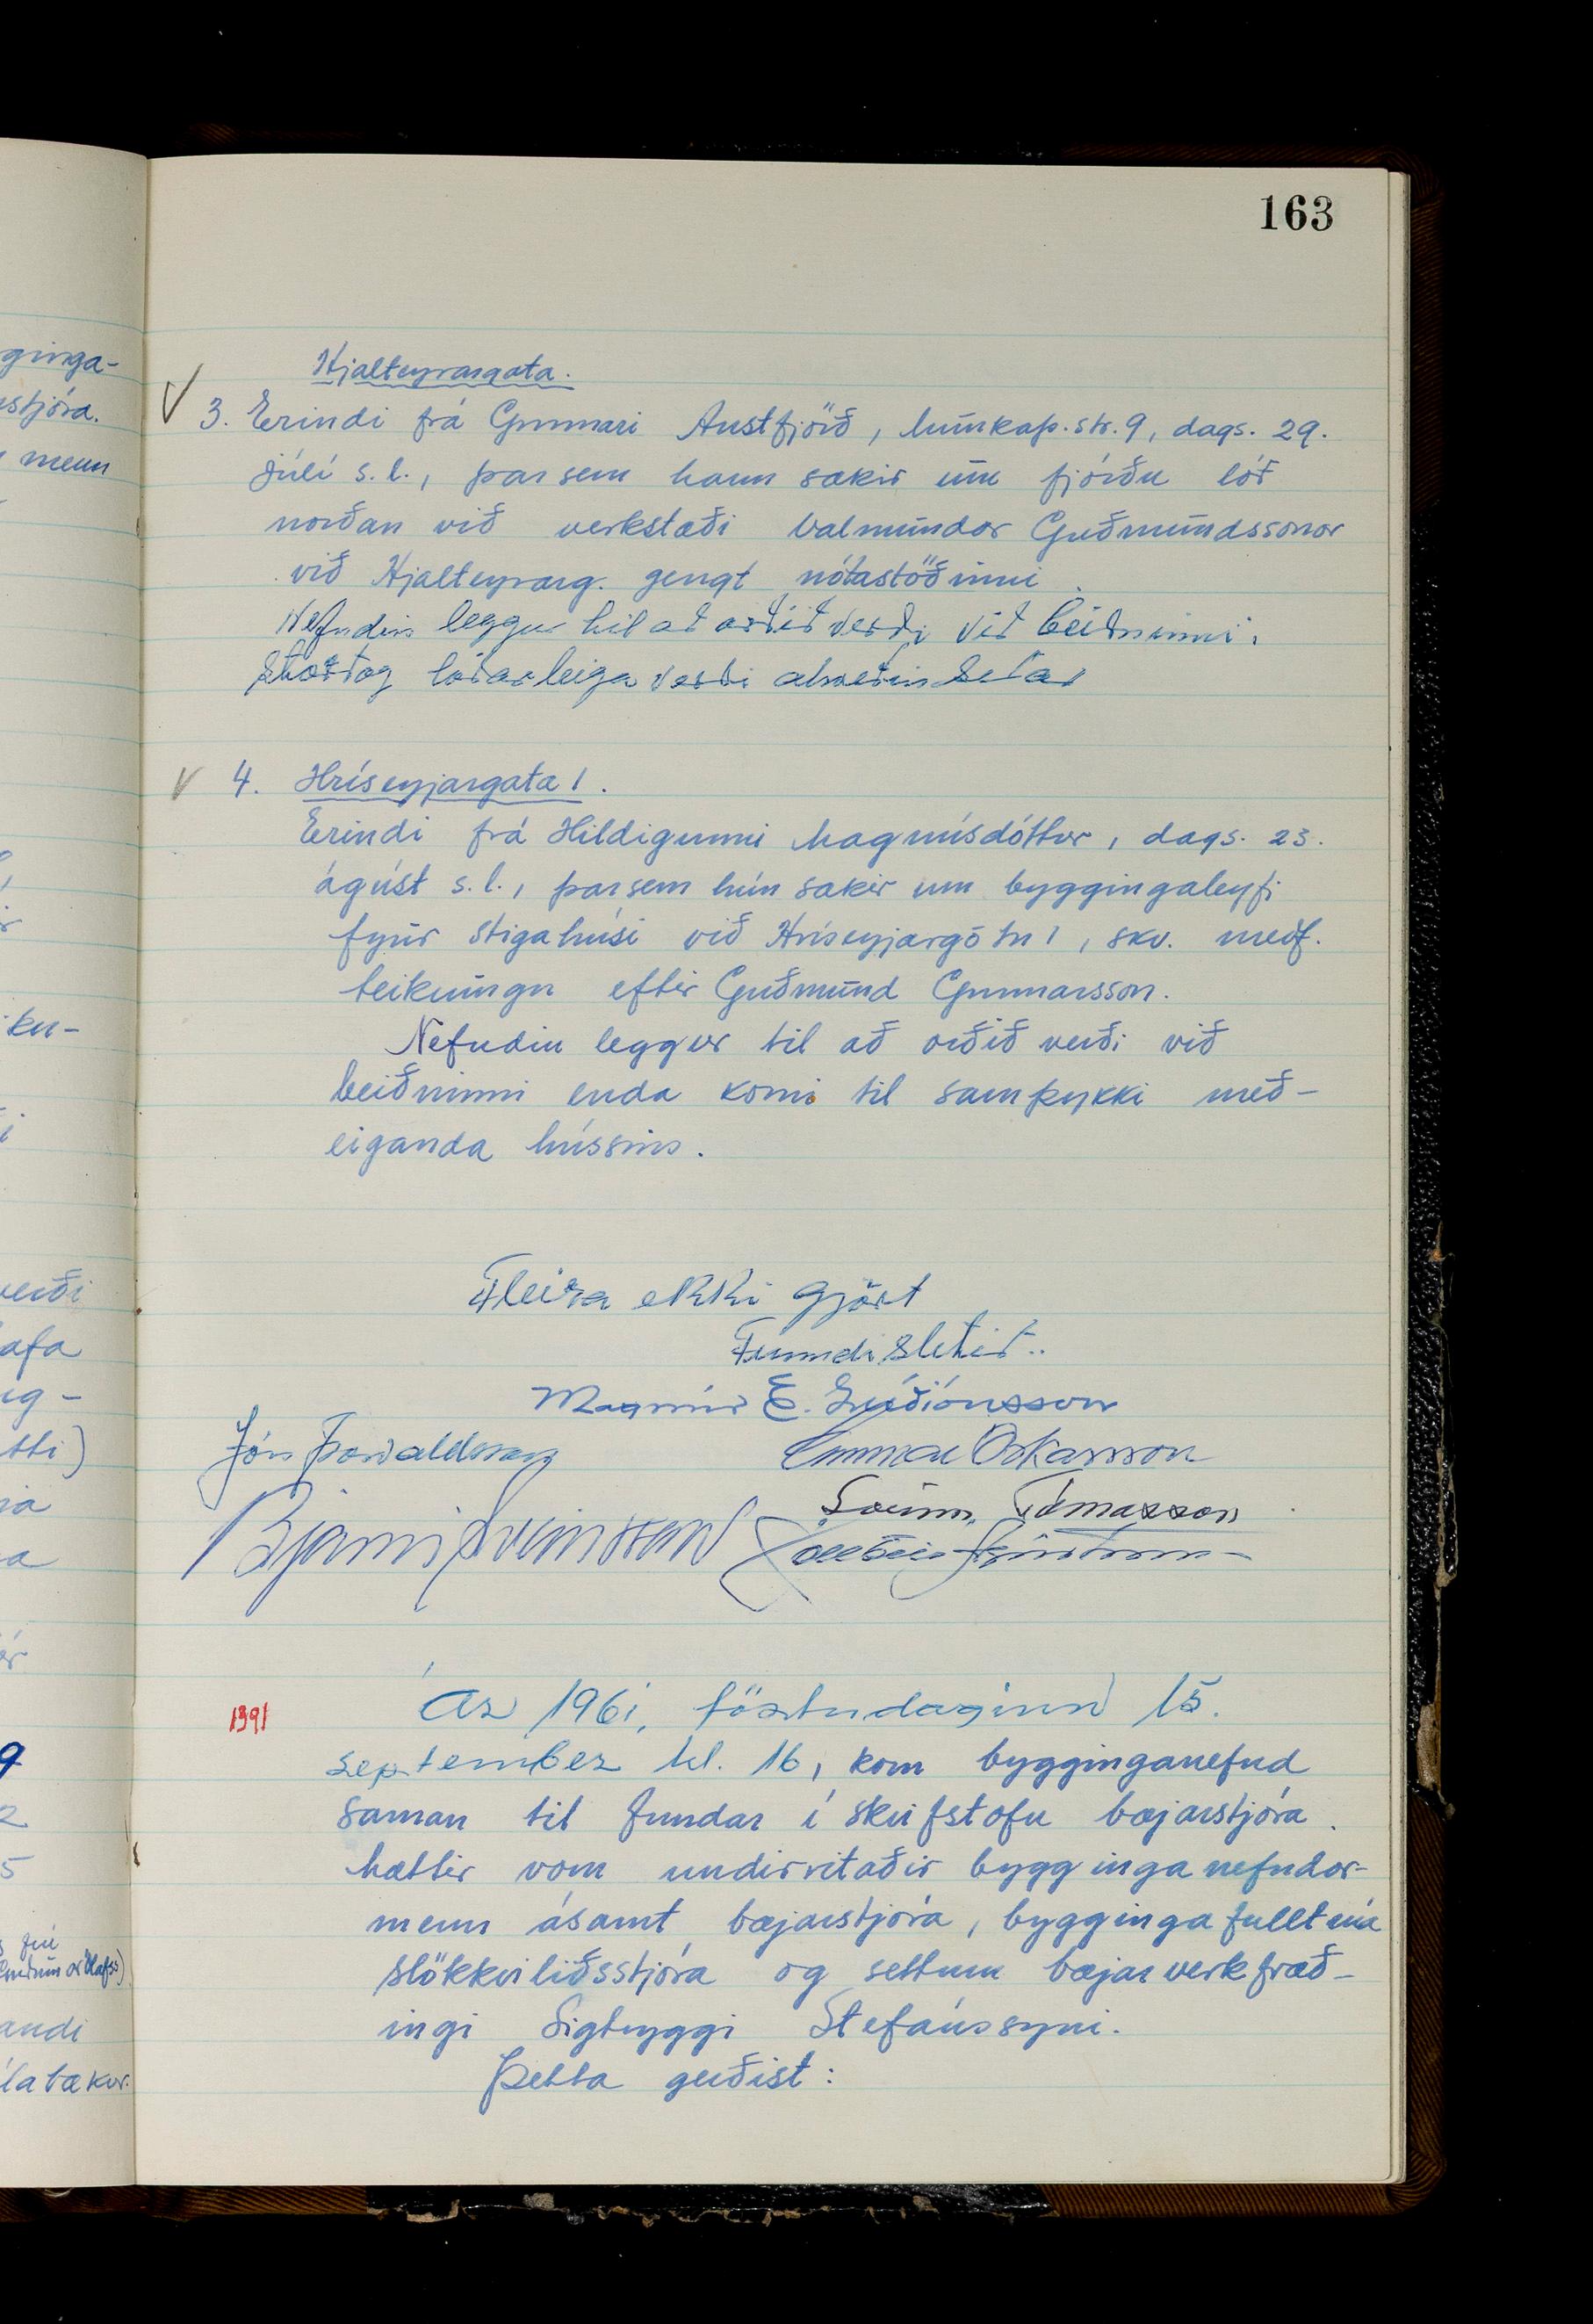 163
Hjalteyrargata.
3. Erindi frá Gunnari Austfjörð, Munkaþ.str. 9, dags. 29.
júlí s.l., þar sem hann sækir um fjórðu lóð
norðan við verkstæði Valmundar Guðmundssonar
við Hjalteyrarg. gengt nótastöðinni.
Nefndin leggur til að orðið verði við beiðninni.
Stærð og lóðarleiga verði
4. Hríseyjargata 1.
Erindi frá Hildigunni Magnúsdóttur, dags. 23.
ágúst s.l., þar sem hún sækir um byggingaleyfi
fyrir stigahúsi við Hríseyjargötu 1, skv. meðf.
teikningu eftir Guðmund Gunnarsson.
Nefndin leggur til að orðið verði við
beiðninni enda komi til samþykki með-
eiganda hússins.
Fleira ekki gjört
Fundi slitið..
Magnús E. Guðjónsson
Jón Þorvaldsson
Gunnar Óskarsson
Bjarni Sveinsson
Sveinn Tómasson
1391
Ár 1961, föstudaginn 15.
september kl. 16, kom bygginganefnd
saman til fundar í skrifstofu bæjarstjóra.
Mættir voru undirritaðir bygginganefndar-
menn ásamt bæjarstjóra, byggingafulltrúa
slökkviliðsstjóra og settum bæjarverkfræð-
ingi Sigtryggi Stefánssyni.
Þetta gerðist:
ginga-
stjóra.
menn
ku-
verði
afa
ug-
andi